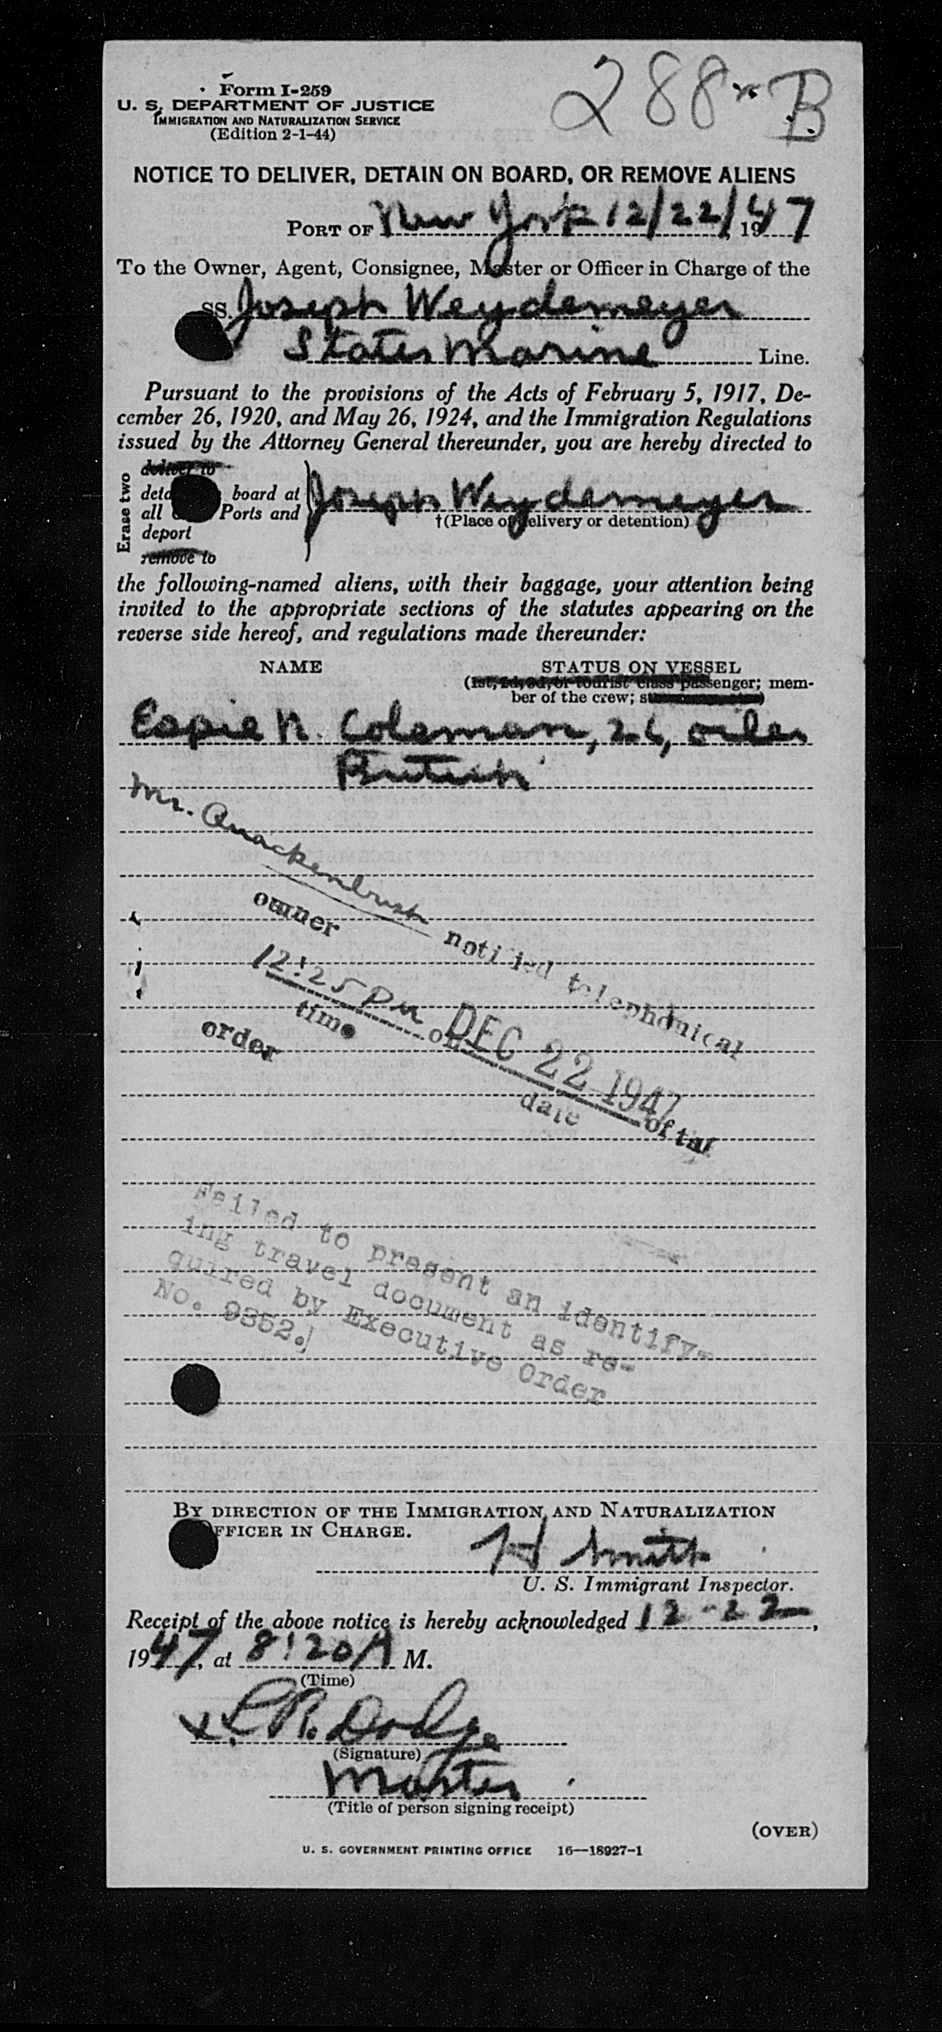 288-B
Form I-259
U. S. DEPARTMENT OF JUSTICE
IMMIGRATION AND NATURALIZATION SERVICE
(Edition 2-1-44)
NOTICE TO DELIVER, DETAIN ON BOARD, OR REMOVE ALIENS
PORT OF New York 12/22/, 1947
To the Owner, Agent, Consignee, Master or Officer in Charge of the
SS. Joseph Weydemeyer
States Marine Line.
Pursuant to the provisions of the Acts of February 5, 1917, De-
cember 26, 1920, and May 26, 1924, and the Immigration Regulations
issued by the Attorney General thereunder, you are hereby directed to
Erase two
deliver to
board at
all Ports and
deport
remove to
Joseph Weydemeyer
†(Place of delivery or detention)
the following-named aliens, with their baggage, your attention being
invited to the appropriate sections of the statutes appearing on the
reverse side hereof, and regulations made thereunder:
NAME STATUS ON VESSEL
(1st, 2d, 3d, or tourist class passenger; mem-
ber of the crew;
Espie N. Coleman, 26, oiler
British
Mr. Quackenbush notified telephonical
owner
12:25 PM on DEC 22 1947 of
time date
order
Failed to present an identify-
ing travel document as re-
quired by Executive Order
No. 9352.
BY DIRECTION OF THE IMMIGRATION AND NATURALIZATION
OFFICER IN CHARGE.
H Smith
U. S. Immigrant Inspector.
Receipt of the above notice is hereby acknowledged 12-22,
1947, at 8:20 A M.
(Time)
x L.R. Dodge
(Signature)
Master
(Title of person signing receipt)
(OVER)
U. S. GOVERNMENT PRINTING OFFICE 16—18927-1